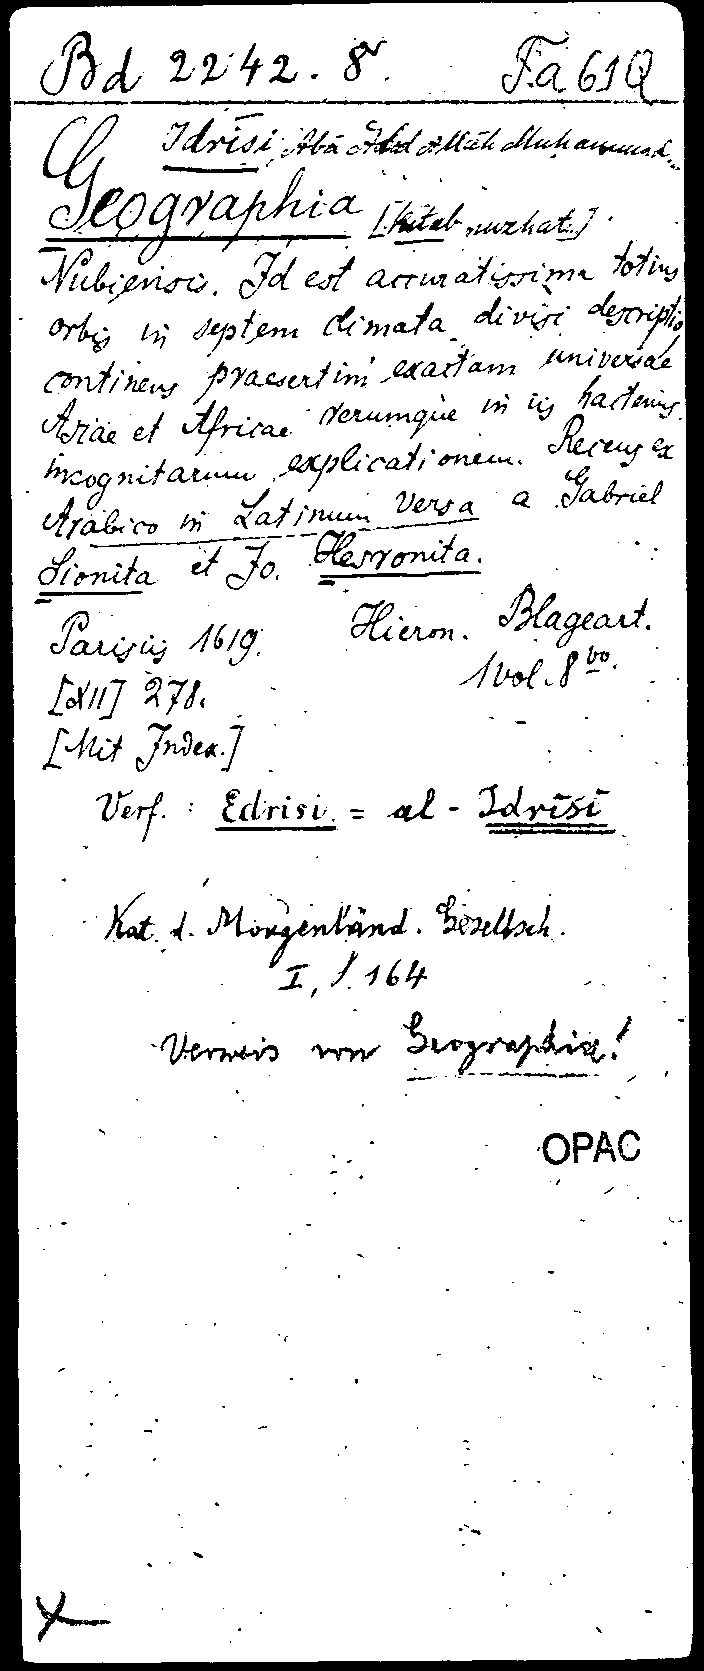 Bd 2242. 8°. Fa 61Q
Idrīsī, Abū Abd Allāh Muhammad...
Geographia [Kitab nuzhat.]
Nubiensis. Id est accuratissima totius
orbis in septem climata divisi descriptio,
continens praesertim exactam universae
Asiae et Africae rerumque in iis hactenus
incognitarum explicationem. Recens ex
Arabico in Latinum versa a Gabriel
Sionita et Jo. Hesronita.
Parisiis 1619. Hieron. Blageart.
[XII] 278. 1 vol. 8vo.
[Mit Index.]
Verf. : Edrisi = al-Idrīsī
Kat. d. Morgenländ. Gesellsch.
I, S. 164
Verweis von Geographia!
OPAC